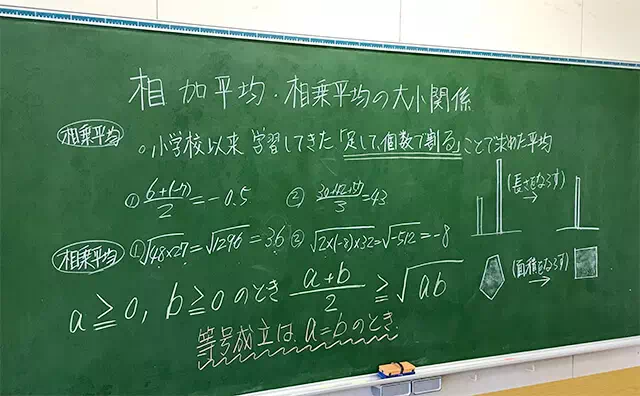 相加平均・相乗平均の大小関係
相乗平均
○小学校以来 学習してきた「足して、個数で割る」ことで求めた平均
① (6+(-7))/2 = -0.5 ② (30+42+57)/3 = 43
(長さをならす)
→
相乗平均
① √48×27 = √1296 = 36 ② ∛2×(-8)×32 = ∛-512 = -8
(面積をならす)
→
a≧0, b≧0 のとき (a+b)/2 ≧ √ab
等号成立は、a=b のとき.